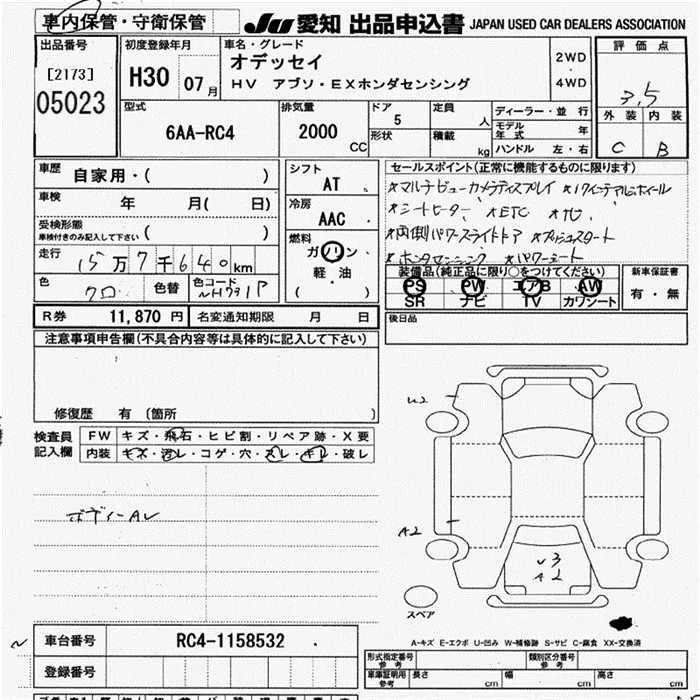 車内保管・守衛保管 JU 愛知 出品申込書 JAPAN USED CAR DEALERS ASSOCIATION
出品番号 初度登録年月 車名・グレード 評価点
[2173] H30 07月 オデッセイ 2WD
05023 HV アブソ・EXホンダセンシング 4WD
3.5
型式 排気量 ドア 定員 ディーラー・並行 外装 内装
6AA-RC4 2000 CC 5 人 モデル年式 年 C B
形状 積載 kg ハンドル 左・右
車歴 自家用・( ) シフト AT セールスポイント(正常に機能するものに限ります)
車検 年 月( 日) 冷房 AAC *マルチビューカメラディスプレイ *17インチアルミホイール
受検形態 *シートヒーター *ETC
車検付きのみ記入して下さい ( ) 燃料 *両側パワースライドドア *プッシュスタート
走行 15万7千640km ガソリン *ホンダセンシング *パワーシート
軽・油
( )
色 クロ 色替 色コード NH731P 装備品(純正品に限り○をつけてください) 新車保証書
PS PW エアB AW 有・無
SR ナビ TV カワシート
R券 11,870 円 名変通知期限 月 日 後日品
注意事項申告欄(不具合内容等は具体的に記入して下さい)
修復歴 有 〔箇所 〕
検査員記入欄 FW キズ・飛石・ヒビ割・リペア跡・X要
内装 キズ・汚レ・コゲ・穴・スレ・キレ・破レ
ボディーAU
U2
A2
U3
A2
スペア
A-キズ E-エクボ U-凹み W-補修跡 S-サビ C-腐食 XX-交換済
車台番号 RC4-1158532
登録番号
形式指定番号 参考 類別区分番号 参考
車庫証明用 参考 長さ cm 幅 cm 高さ cm